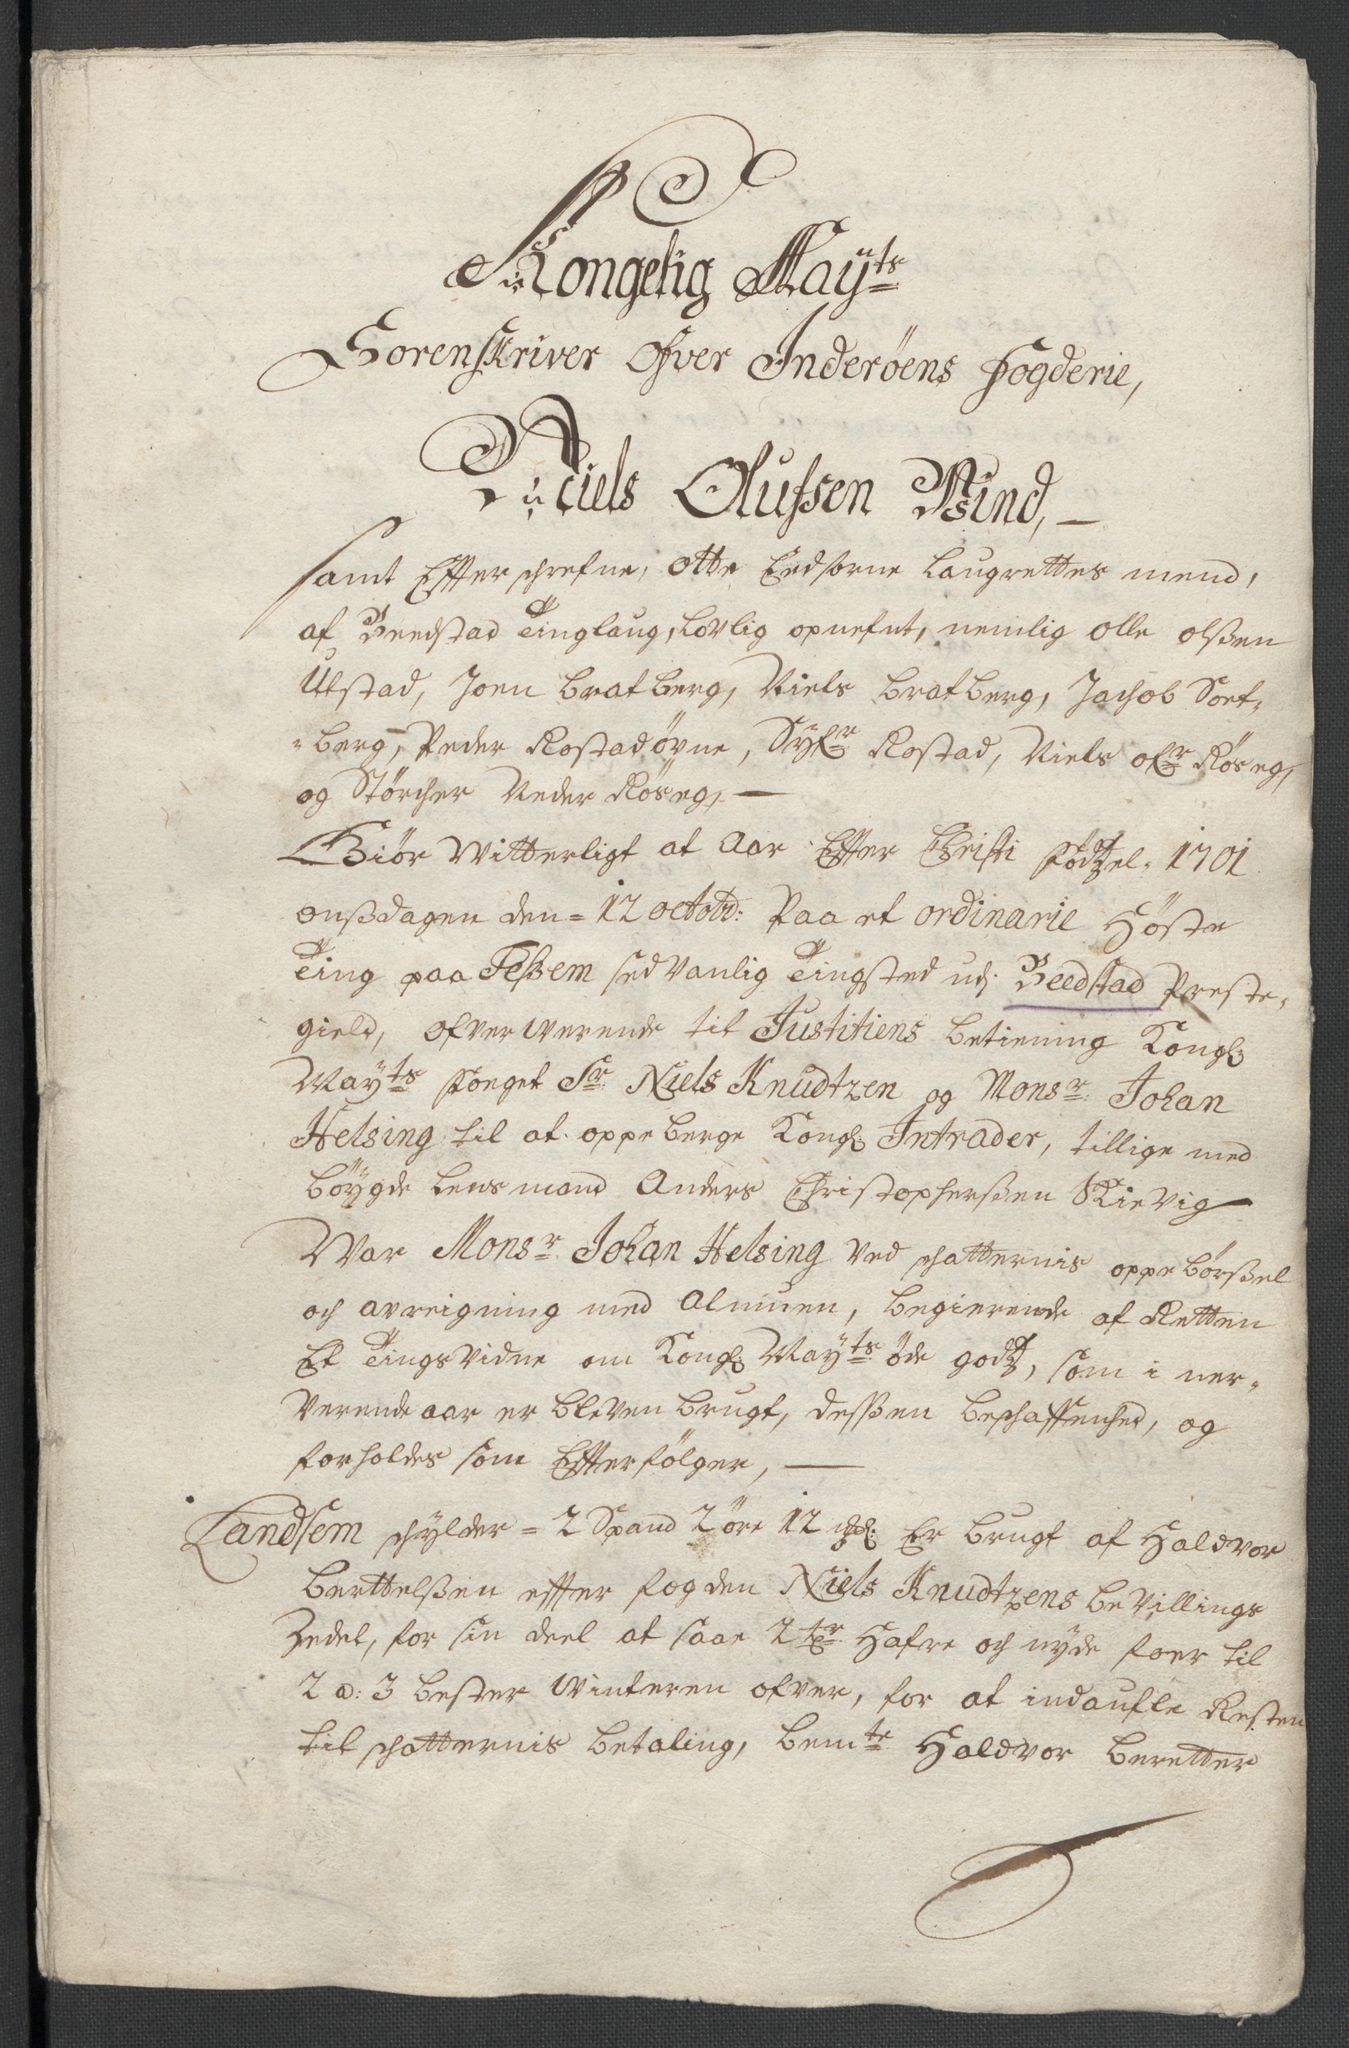 Kongelig Mayts
Sorenskriver Ofver Inderöens Fogderie,
Niels Olufsen Vind,
samt Effterschrefne, otte Eedsorne Laugrettes mend,
af Beedstad Tinglaug, Lovlig opnefnt, nemlig olle olßen
Ulstad, Joen bratberg, Niels bratberg, Jachob Soet-
-berg, Peder Rostadöyne, Syfr Rostad, Niels ofr Röseg,
og Störcher Neder Röseg,
Giör Witterligt at Aar Effter Christi fødtzel, 1701
onßdagen den = 12 octobr: Paa et ordinarie Höste
Ting paa Feßem sedvanlig Tingsted udj Beedstad Preste-
gield, ofverwerende til Justitiens betiening Kongl
Mayts foeget Sr Niels Knudtzen og Monsr Johan
Helsing til at oppeberge Kongl Intrader, tillige med
böygde Lensmand Anders Christopherßen Skievig
War Monsr Johan Helsing ved schatternis oppebörßel
och avreigning med Almuen, begierende af Retten
Et Tingsvidne om Kongl Mayts öde godtz, som i ner-
verende aar er bleven brugt, desßen beschaffenhed, og
forholdes som Effterfölger,
Landsem schylder = 2 Spand 2 öre 12 Er brugt af Haldvor
berttelßen effter fogden Niels Knudtzens bevillings
Zedel, for sin deel at saae 2 tr Hafre och nyde foer til
2 a: 3 bester Winteren ofver, for at indaufle Resten
til schatternis betaling, bemte Haldvor beretter